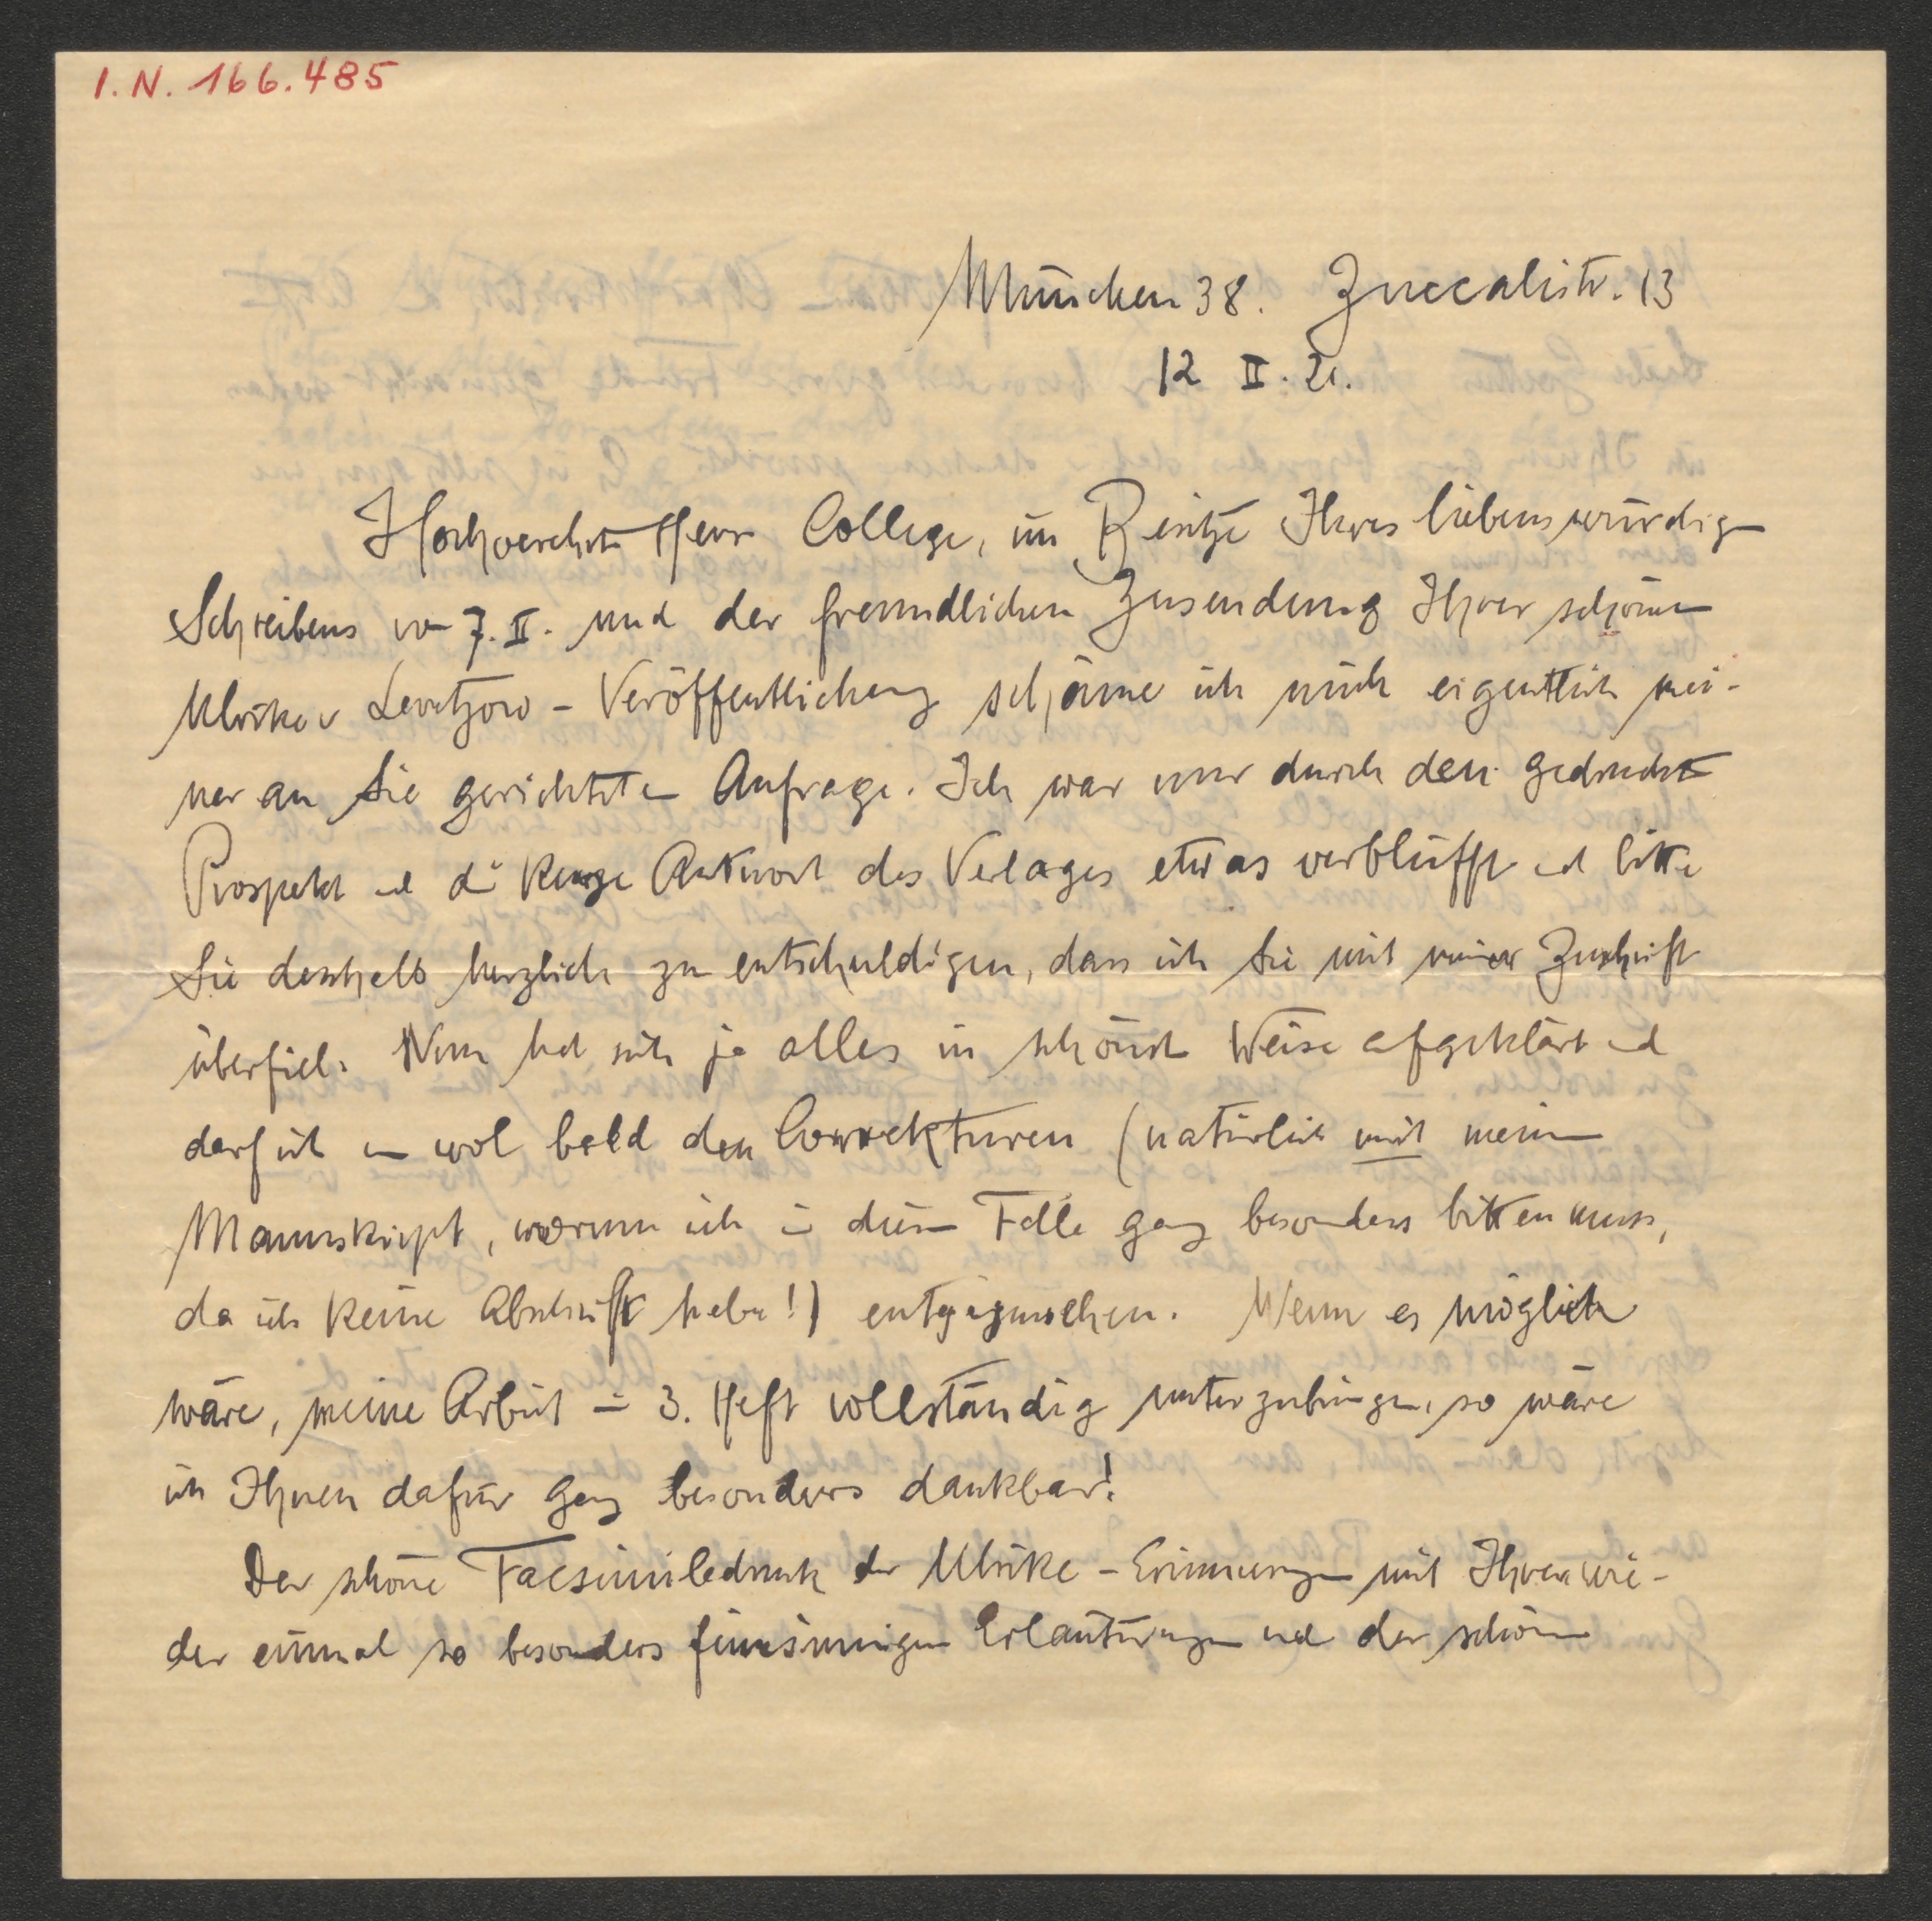 I. N. 166.485
München 38. Zuccalistr. 13
12 II. 21.
Hochverehrter Herr College, im Besitze Ihres liebenswürdigen
Schreibens vom 7. II. und der freundlichen Zusendung Ihrer schönen
Ulrike v Levetzow - Veröffentlichung schäme ich mich eigentlich mei-
ner an Sie gerichteten Anfrage. Ich war nur durch den gedruckten
Prospekt und die kurze Antwort des Verlages etwas verblüfft und bitte
Sie deshalb herzlich zu entschuldigen, dass ich Sie mit meiner Zuschrift
überfiel. Nun hat sich ja alles in schönster Weise aufgeklärt und
darf ich nun wol bald den Correkturen (natürlich mit meinem
Manuskript, worum ich in diesem Falle ganz besonders bitten muss,
da ich keine Abschrift habe!) entgegensehen. Wenn es möglich
wäre, meine Arbeit im 3. Heft vollständig unterzubringen, so wäre
ich Ihnen dafür ganz besonders dankbar!
Der schöne Facsimiledruck der Ulrike - Erinnerungen mit Ihren wie-
der einmal so besonders feinsinnigen Erläuterungen und der schönen